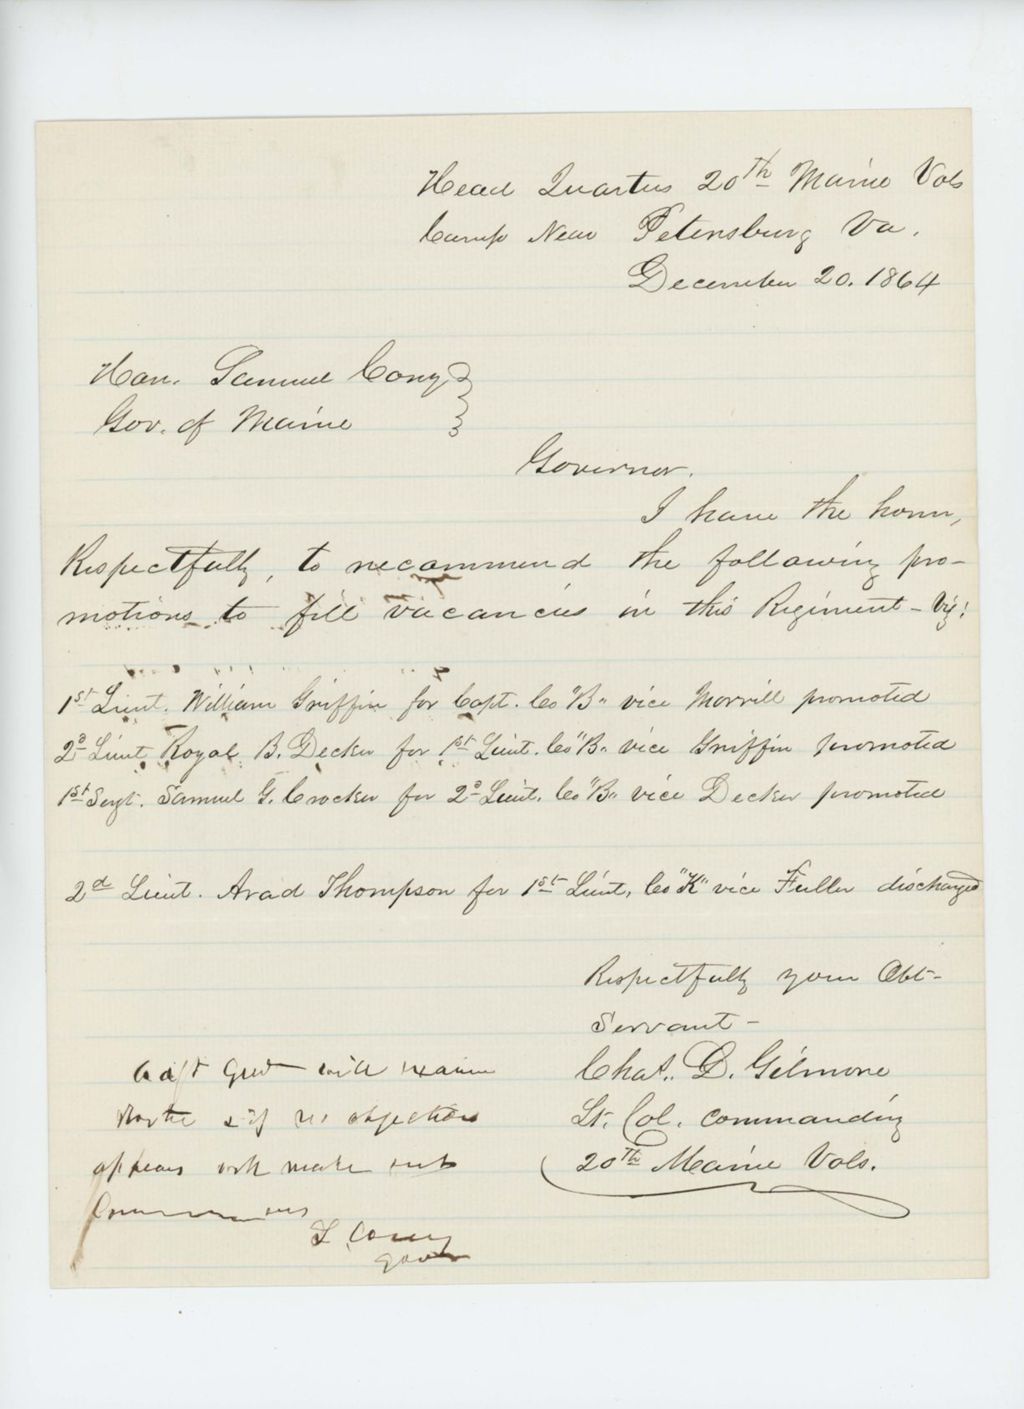 Head Quarters 20th Maine Vols
Camp Near Petersburg Va.
December 20. 1864
Hon. Samuel Cony
Gov. of Maine
Governor.
I have the honor,
Respectfully, to recommend the following pro-
motions to fill vacancies in this Regiment - Viz:
1st Lieut. William Griffin for Capt. Co "B" vice Morrill promoted
2d Lieut. Royal B. Decker for 1st Lieut. Co "B" vice Griffin promoted
1st Sergt. Samuel G. Crocker for 2d Lieut. Co "B" vice Decker promoted
2d Lieut. Arad Thompson for 1st Lieut. Co "K" vice Fuller discharged
Respectfully your Obt-
Servant -
Chas. D. Gilmore
Lt. Col. Commanding
20th Maine Vols.
Genl will examine
& if no objection
appears will make out
Commissions
S. Cony
Govr